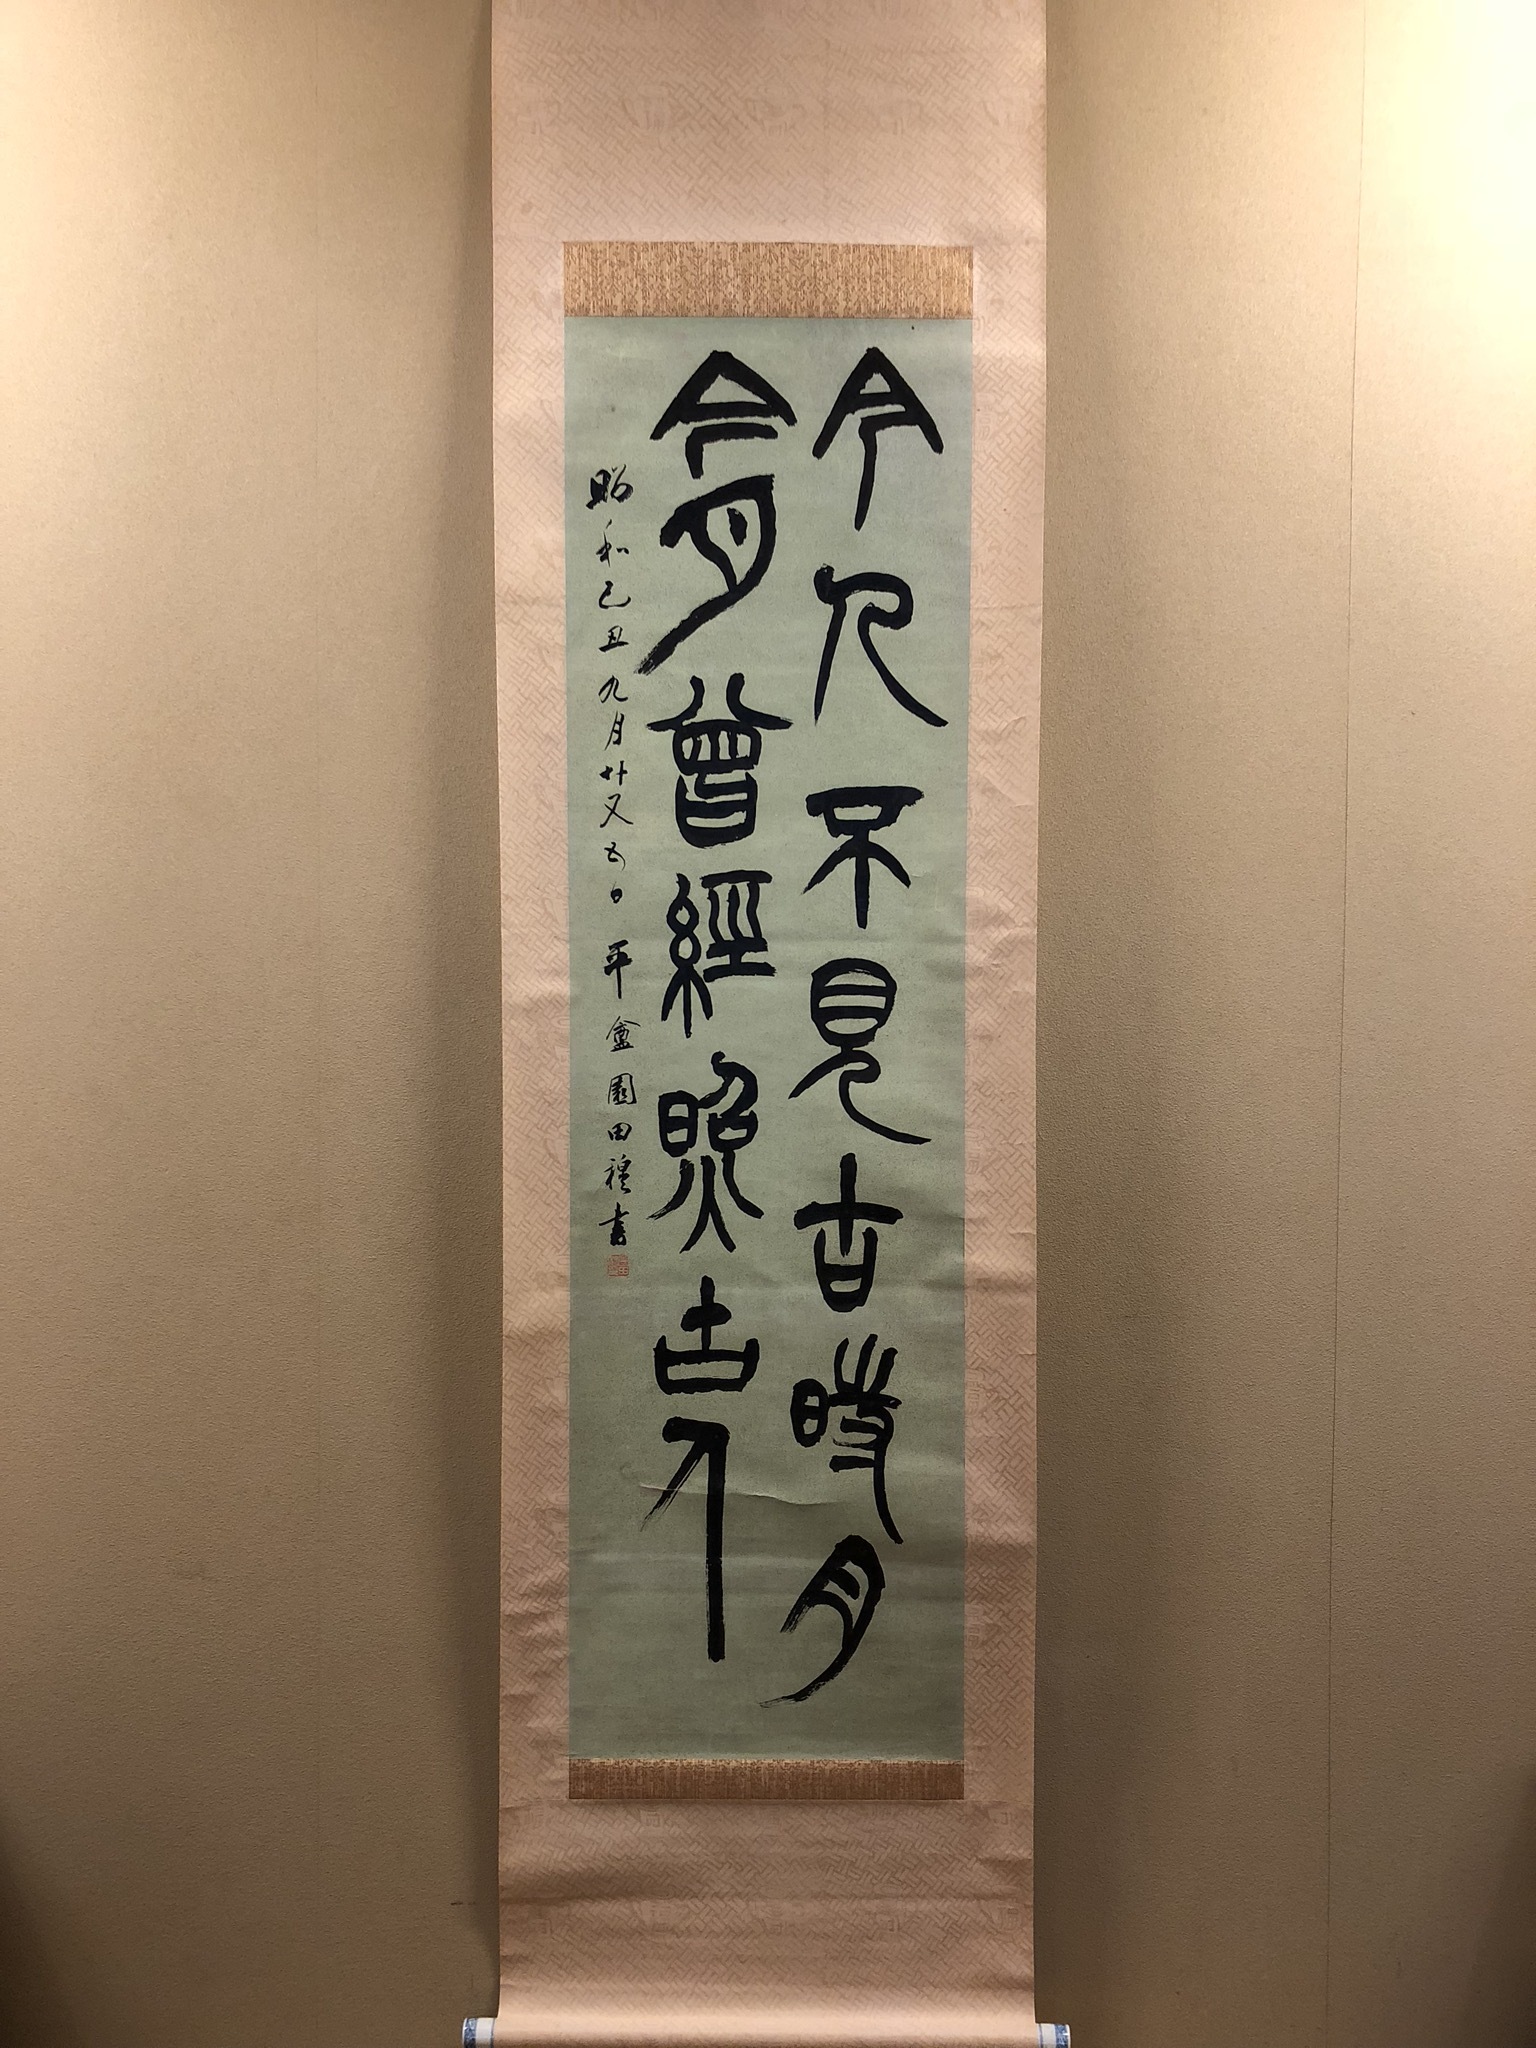 今人不見古時月
今月曾經照古人
昭和己丑九月廿又五日 平盦園田穆書